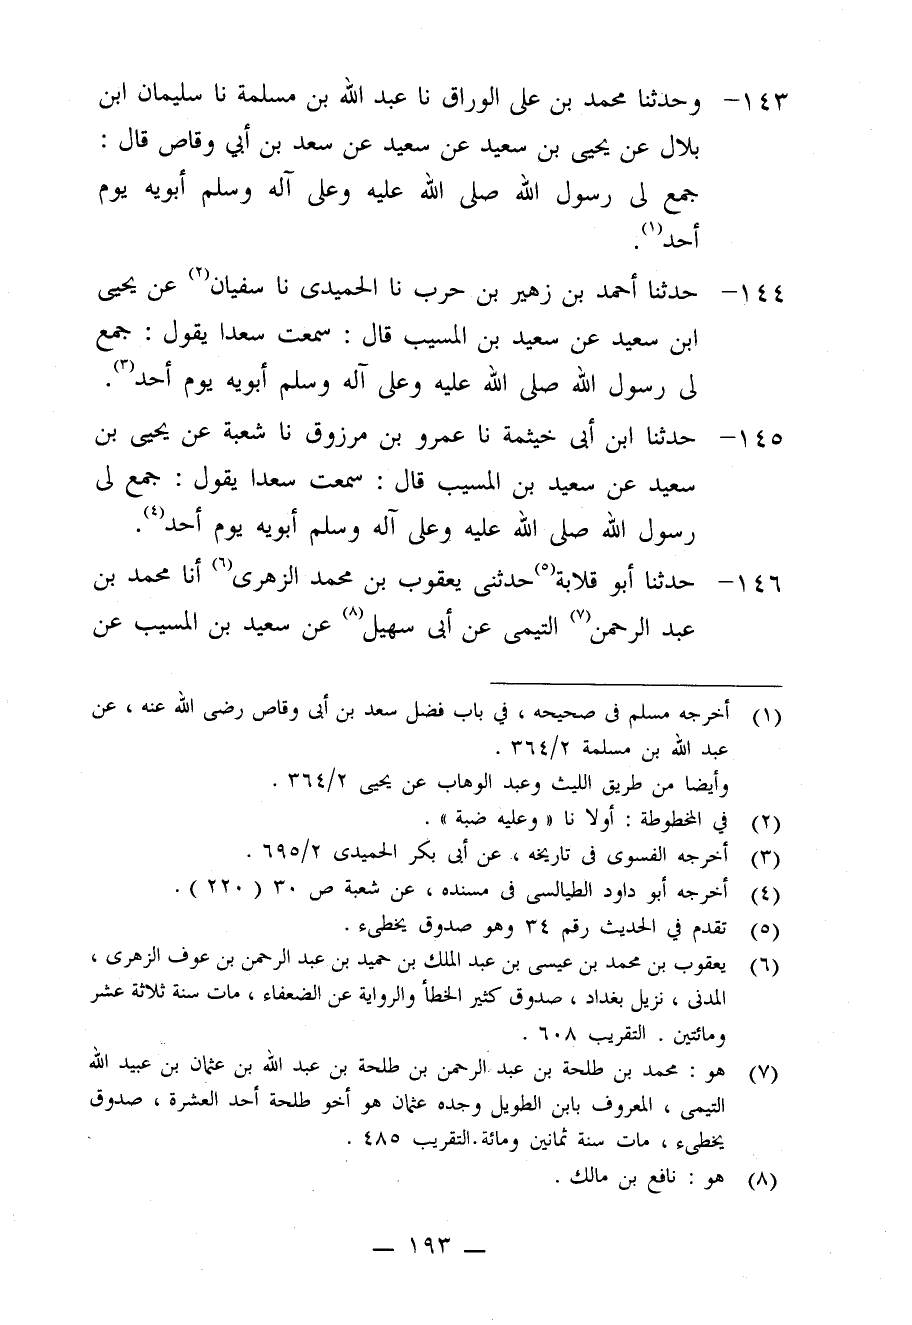 ١٤٣- وحدثنا محمد بن على الوراق نا عبد الله بن مسلمة نا سليمان ابن
بلال عن يحيى بن سعيد عن سعيد عن سعد بن أبي وقاص قال :
جمع لى رسول الله صلى الله عليه وعلى آله وسلم أبويه يوم
أحد(١).
١٤٤- حدثنا أحمد بن زهير بن حرب نا الحميدى نا سفيان(٢) عن يحيى
ابن سعيد عن سعيد بن المسيب قال : سمعت سعدا يقول : جمع
لى رسول الله صلى الله عليه وعلى آله وسلم أبويه يوم أحد(٣).
١٤٥- حدثنا ابن أبى خيثمة نا عمرو بن مرزوق نا شعبة عن يحيى بن
سعيد عن سعيد بن المسيب قال : سمعت سعدا يقول : جمع لى
رسول الله صلى الله عليه وعلى آله وسلم أبويه يوم أحد(٤).
١٤٦- حدثنا أبو قلابة(٥) حدثنى يعقوب بن محمد الزهرى(٦) أنا محمد بن
عبد الرحمن(٧) التيمى عن أبى سهيل(٨) عن سعيد بن المسيب عن
(١) أخرجه مسلم فى صحيحه ، في باب فضل سعد بن أبى وقاص رضى الله عنه ، عن
عبد الله بن مسلمة ٣٦٤/٢ .
وأيضا من طريق الليث وعبد الوهاب عن يحيى ٣٦٤/٢ .
(٢) في المخطوطة : أولا نا « وعليه ضبة » .
(٣) أخرجه الفسوى فى تاريخه ، عن أبى بكر الحميدى ٦٩٥/٢ .
(٤) أخرجه أبو داود الطيالسى فى مسنده ، عن شعبة ص ٣٠ ( ٢٢٠ ) .
(٥) تقدم في الحديث رقم ٣٤ وهو صدوق يخطىء .
(٦) يعقوب بن محمد بن عيسى بن عبد الملك بن حميد بن عبد الرحمن بن عوف الزهرى ،
المدنى ، نزيل بغداد ، صدوق كثير الخطأ والرواية عن الضعفاء ، مات سنة ثلاثة عشر
ومائتين . التقريب ٦٠٨ .
(٧) هو : محمد بن طلحة بن عبد الرحمن بن طلحة بن عبد الله بن عثمان بن عبيد الله
التيمى ، المعروف بابن الطويل وجده عثمان هو أخو طلحة أحد العشرة ، صدوق
يخطىء ، مات سنة ثمانين ومائة. التقريب ٤٨٥ .
(٨) هو : نافع بن مالك .
— ١٩٣ —